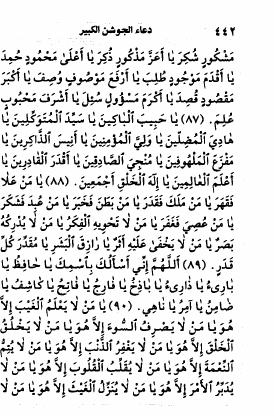 ٤٤٢ دعاء الجوشن الكبير
مَشْكُورٍ شُكِرَ يَا أَعَزَّ مَذْكُورٍ ذُكِرَ يَا أَعْلَىٰ مَحْمُودٍ حُمِدَ
يَا أَقْدَمَ مَوْجُودٍ طُلِبَ يَا أَرْفَعَ مَوْصُوفٍ وُصِفَ يَا أَكْبَرَ
مَقْصُودٍ قُصِدَ يَا أَكْرَمَ مَسْؤُولٍ سُئِلَ يَا أَشْرَفَ مَحْبُوبٍ
عُلِمَ. (٨٧) يَا حَبِيبَ الْبَاكِينَ يَا سَيِّدَ الْمُتَوَكِّلِينَ يَا
هَادِيَ الْمُضِلِّينَ يَا وَلِيَّ الْمُؤْمِنِينَ يَا أَنِيسَ الذَّاكِرِينَ يَا
مَفْزَعَ الْمَلْهُوفِينَ يَا مُنْجِيَ الصَّادِقِينَ يَا أَقْدَرَ الْقَادِرِينَ يَا
أَعْلَمَ الْعَالِمِينَ يَا إِلَهَ الْخَلْقِ أَجْمَعِينَ. (٨٨) يَا مَنْ عَلَا
فَقَهَرَ يَا مَنْ مَلَكَ فَقَدَرَ يَا مَنْ بَطَنَ فَخَبَرَ يَا مَنْ عُبِدَ فَشَكَرَ
يَا مَنْ عُصِيَ فَغَفَرَ يَا مَنْ لَا تَحْوِيهِ الْفِكَرُ يَا مَنْ لَا يُدْرِكُهُ
بَصَرٌ يَا مَنْ لَا يَخْفَىٰ عَلَيْهِ أَثَرٌ يَا رَازِقَ الْبَشَرِ يَا مُقَدِّرَ كُلِّ
قَدَرٍ. (٨٩) اَللَّهُمَّ إِنِّي أَسْأَلُكَ بِاسْمِكَ يَا حَافِظُ يَا
بَارِىءُ يَا ذَارِىءُ يَا بَاذِخُ يَا فَارِجُ يَا فَاتِحُ يَا كَاشِفُ يَا
ضَامِنُ يَا آمِرُ يَا نَاهِي. (٩٠) يَا مَنْ لَا يَعْلَمُ الْغَيْبَ إِلَّا
هُوَ يَا مَنْ لَا يَصْرِفُ السُّوءَ إِلَّا هُوَ يَا مَنْ لَا يَخْلُقُ
الْخَلْقَ إِلَّا هُوَ يَا مَنْ لَا يَغْفِرُ الذَّنْبَ إِلَّا هُوَ يَا مَنْ لَا يُتِمُّ
النِّعْمَةَ إِلَّا هُوَ يَا مَنْ لَا يُقَلِّبُ الْقُلُوبَ إِلَّا هُوَ يَا مَنْ لَا
يُدَبِّرُ الْأَمْرَ إِلَّا هُوَ يَا مَنْ لَا يُنَزِّلُ الْغَيْثَ إِلَّا هُوَ يَا مَنْ لَا